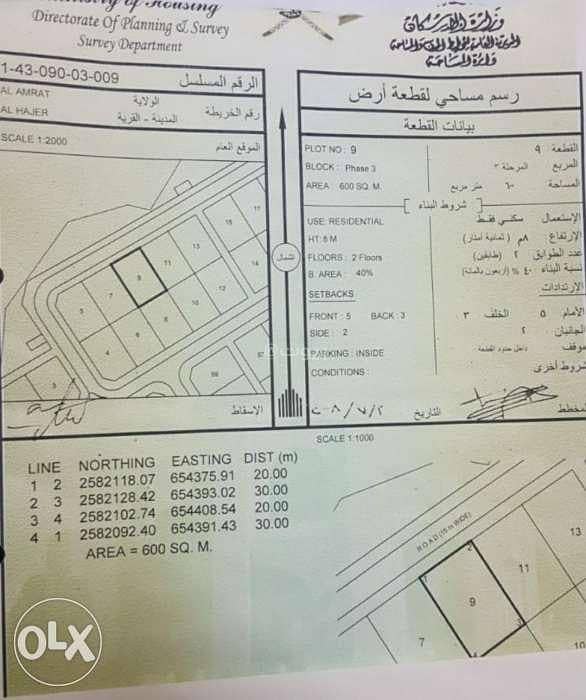 Ministry of Housing
Directorate Of Planning & Survey
Survey Department
وزارة الإسكان
دائرة المساحة
1-43-090-03-009
الرقم المسلسل
AL AMRAT
الولاية
AL HAJER
المدينة - القرية
رقم الخريطة
SCALE 1:2000
الموقع العام
17
15
13
11
9
7
5
3
4
6
8
10
12
14
شمال
الاسقاط
رسم مساحي لقطعة أرض
بيانات القطعة
PLOT NO : 9
القطعة ٩
BLOCK : Phase 3
المربع المرحلة ٣
AREA : 600 SQ. M.
المساحة ٦٠٠ متر مربع
شروط البناء
USE: RESIDENTIAL
الإستعمال سكني فقط
HT: 8 M
الإرتفاع ٨م (ثمانية أمتار)
FLOORS : 2 Floors
عدد الطوابق ٢ (طابقين)
B. AREA : 40%
نسبة البناء ٤٠ % (أربعون بالمائة)
SETBACKS
الإرتدادات
FRONT : 5 BACK : 3
الأمام ٥ الخلف ٣
SIDE : 2
الجانبان ٢
PARKING : INSIDE
موقف داخل حدود القطعة
CONDITIONS :
شروط أخرى
المخطط
التاريخ
SCALE 1:1000
LINE NORTHING EASTING DIST (m)
1 2 2582118.07 654375.91 20.00
2 3 2582128.42 654393.02 30.00
3 4 2582102.74 654408.54 20.00
4 1 2582092.40 654391.43 30.00
AREA = 600 SQ. M.
ROAD (15 m WIDE)
1
2
3
4
9
11
7
10
OLX